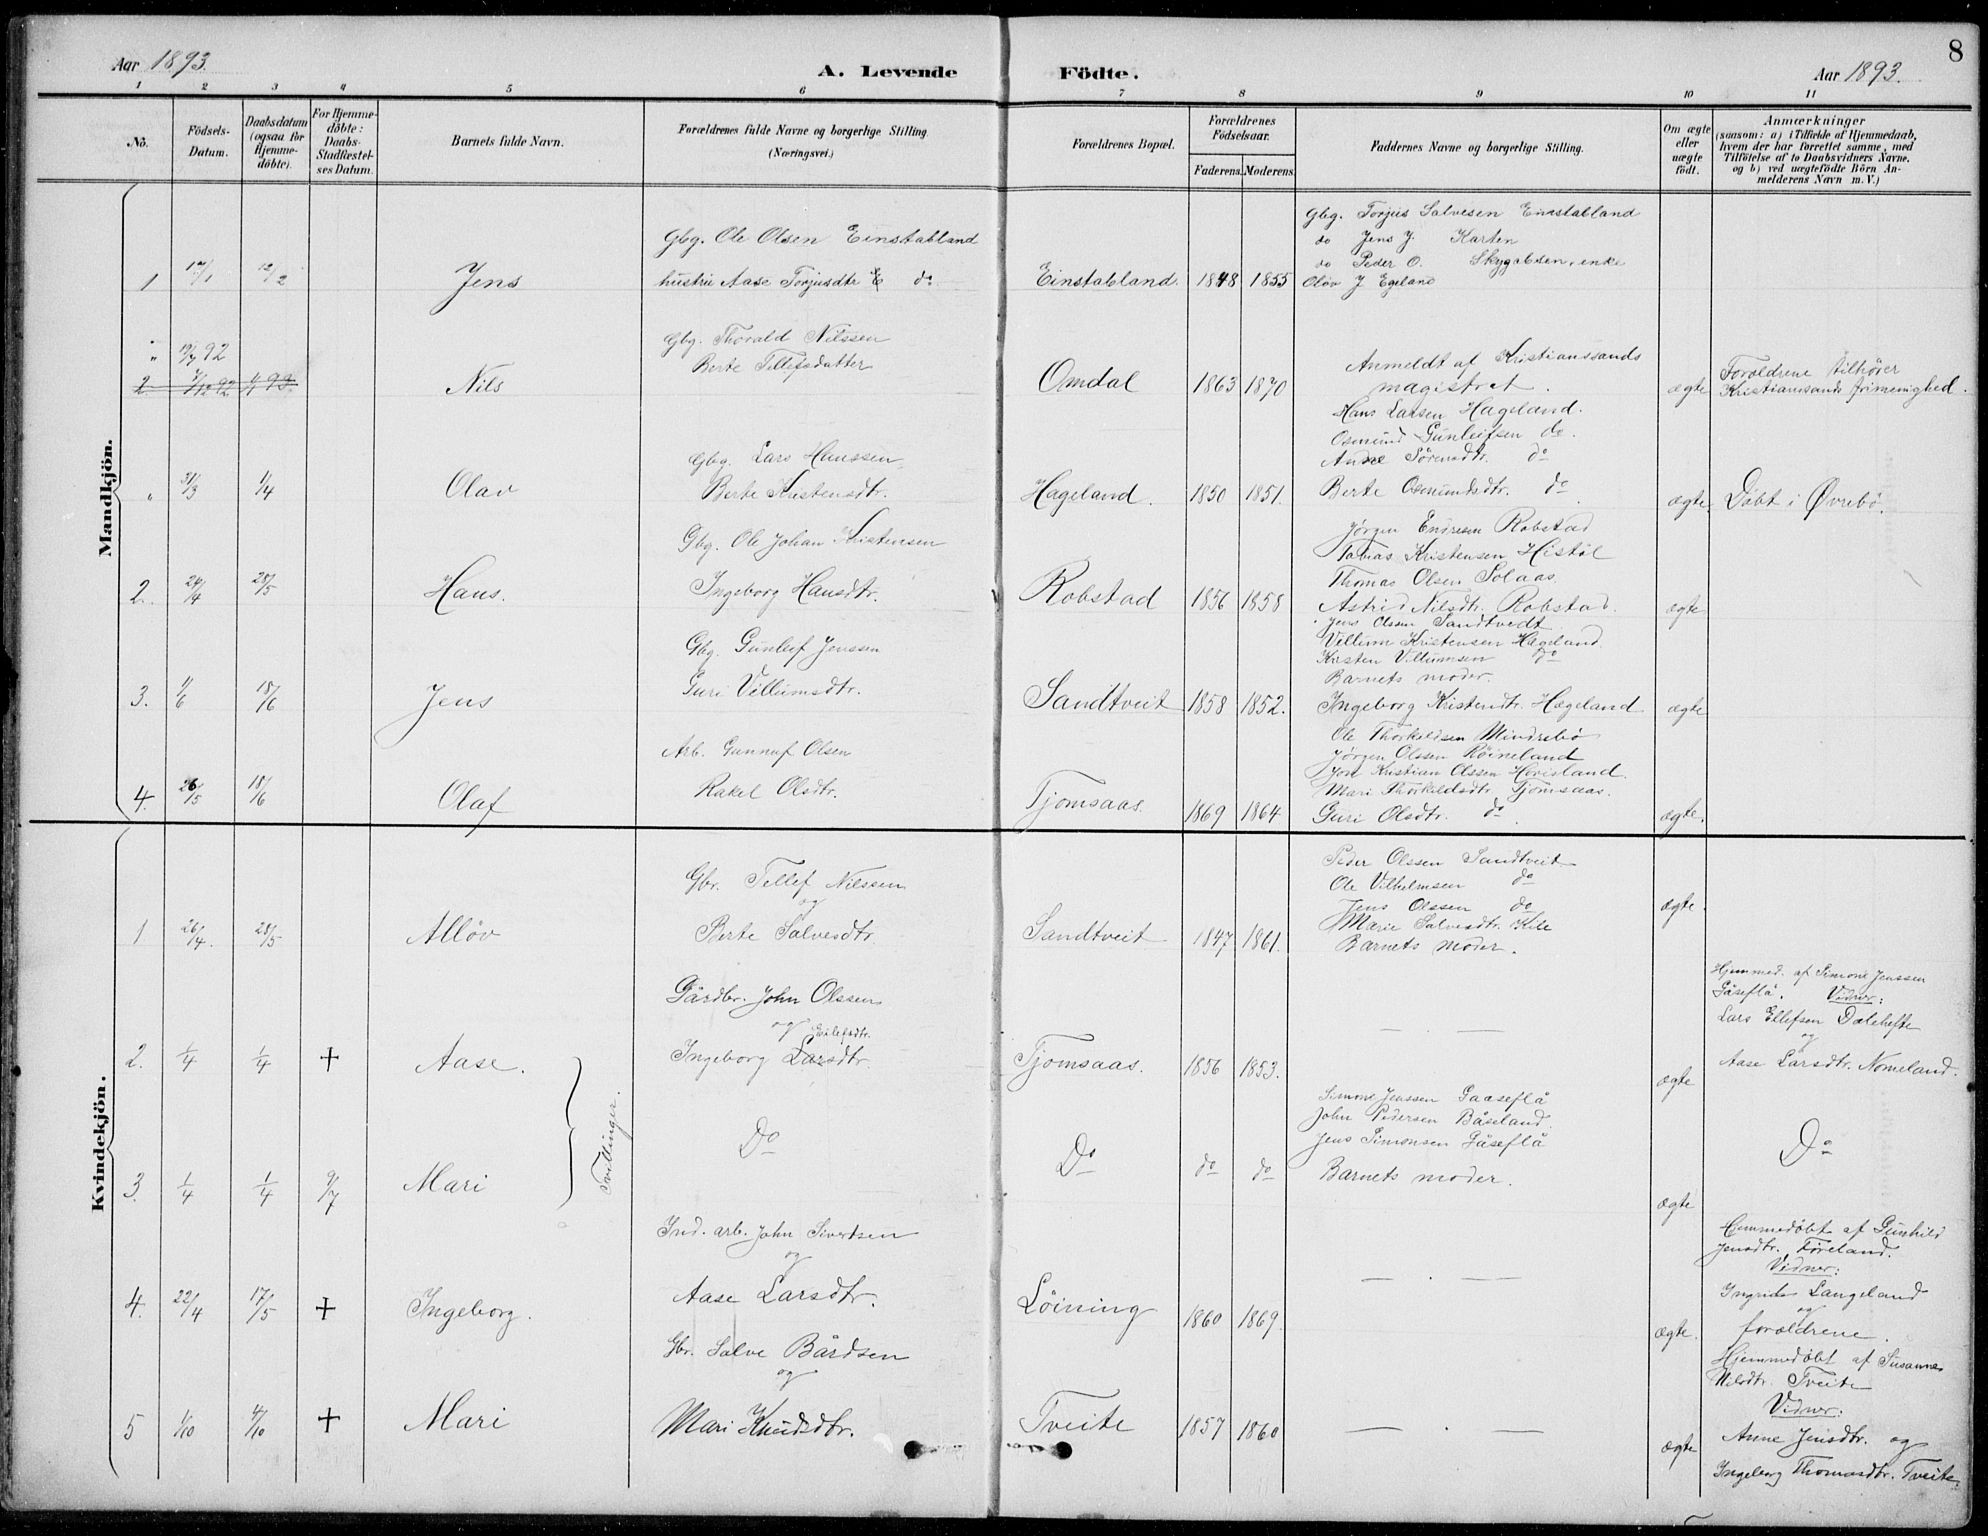 8
Aar 1893.
A. Levende Födte.
Aar 1893.
1 2 3 4 5 6 7 8 9 10 11
No.
Födsels-
Datum.
Daabsdatum
(ogsaa for
Hjemme-
döbte).
For Hjemme-
döbte:
Daabs-
Stadfæstel-
ses Datum.
Barnets fulde Navn.
Forældrenes fulde Navne og borgerlige Stilling.
(Næringsvei.)
Forældrenes Bopæl.
Forældrenes
Födselsaar.
Faderens. Moderens.
Faddernes Navne og borgerlige Stilling.
Om ægte
eller
uægte
födt.
Anmærkninger
(saasom: a) i Tilfælde af Hjemmedaab,
hvem der har forrettet samme, med
Tilföielse af to Daabsvidners Navne,
og b) ved uægtefödte Börn An-
melderens Navn m. V.)
Mandkjön.
1 12/2 Jens
Gbg. Ole Olsen Einstabland
hustru Aase Torjusdtr E do
Einstabland. 1848 1855
Gbg. Torjus Salvesen Einstabland
do Jens J. Karten
do Peder O. enke
Oløv J Egeland
" 92
2 92 93 Nils
Gbg. Thorald Nilssen
Berte Tellefsdatter
Omdal 1863 1870
Anmeldt af Kristianssands
magistrat.
ægte
Forældrene tilhører
Kristianssands frimenighed.
" 31/3 1/4 Olav
Gbg. Lars Hanssen
Berte Kristensdtr.
Hageland. 1850 1851.
Hans Larsen Hageland.
Osmund Gunleifsen do.
Anne Sørensdtr. do
Berte Osmundsdtr. do
ægte
Døbt i Øvrebø.
2. 24/4 28/5 Hans.
Gbg. Ole Johan Kristensen
Ingeborg Hansdtr.
Robstad 1856 1858
Jørgen Endresen Robstad
Tobias Kristensen Histøl
Thomas Olsen Solaas
Astrid Nilsdtr. Robstad.
ægte
3. 1/6 18/6 Jens
Gbg. Gunleif Jenssen
Guri Villumsdtr.
Sandtveit 1858 1852.
Jens Olssen Sandtvedt
Villum Kristensen Hageland.
Kristen Villumsen do
Barnets moder.
Ingeborg Kristendtr. Hægeland
ægte
4. 26/5 18/6 Olaf
Arb. Gunnuf Olsen
Rakel Olsdtr.
Tjomsaas. 1869 1864
Ole Thorkildsen Mindrebø
Jørgen Olssen Røineland
Jon Kristian Olssen Hovisland.
Mari Thorkildsdtr. Tjomsaas.
Guri Olsdtr. do
ægte.
Kvindekjön.
1 26/4. 28/5 Alløv
Gbr. Tellef Nilssen
og
Berte Salvesdtr.
Sandtveit 1847 1861.
Peder Olssen Sandtveit
Ole Vilhelmsen do
Jens Olssen do
Marie Salvesdtr. Kile
Barnets moder.
ægte.
2. 1/4 1/4 + Aase.
Gårdbr. John Olssen
og
Ingeborg Larsdtr.
Tjomsaas. 1856 1853.
— —
ægte
Hjemmed. af Simone Jenssen
Gåseflå. Vidner:
Lars Ellefsen Dalehefte
og
Aase Larsdtr. Nomeland.
Tvillinger.
3. 1/4 1/4 9/7 Mari
Do
Do do do
Simone Jenssen Gaaseflå
John Pedersen Båseland.
Jens Simonsen Gåseflå
Barnets moder.
ægte
Do
4. 22/4 17/5 + Ingeborg.
Ind. arb. John Sivertsen
og
Aase Larsdtr.
Løining 1860 1869.
— . —
ægte.
Hemmedøbt af Gunhild
Jensdtr. Føreland.
Vidner:
Langeland
og
forældrene.
5 1/10 4/10 + Mari
Gbr. Salve Bårdsen
og
Mari Knudsdtr.
Tveite 1857 1860
— . —
ægte
Hjemmedøbt af Susanne
Nilsdtr. Tveite
Vidner:
Anne Jensdtr. og
Ingeborg Thomasdtr. Tveite.